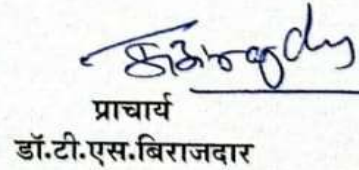 प्राचार्य
डॉ.टी.एस.बिराजदार